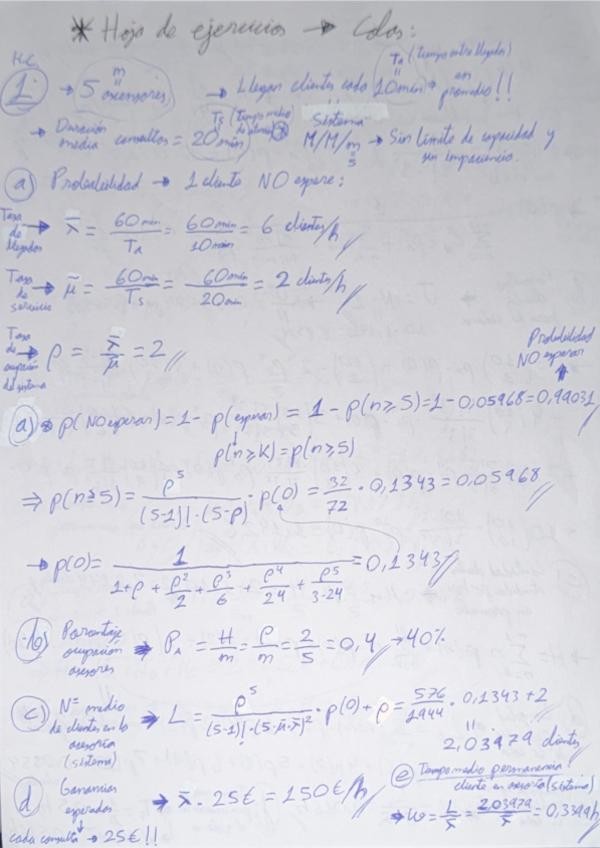 * Hoja de ejercicios → Colas:
H.C.
1 → 5 asesores → Llegan clientes cada 10 min → en promedio!!
m
Ta (tiempo entre llegadas)
→ Duración media consultas = 20 min
Ts (tiempo medio
Sistema
M/M/m → Sin límite de capacidad y sin impaciencia.
s
a) Probabilidad → 1 cliente NO espere:
Tasa de llegadas → λ̄ = 60 min / Ta = 60 min / 10 min = 6 clientes/h
Tasa de servicio → μ̄ = 60 min / Ts = 60 min / 20 min = 2 clients/h
Tasa de ocupación del sistema → ρ = λ̄ / μ̄ = 2
Probabilidad NO esperar
a) p(NO esperar) = 1 - p(esperar) = 1 - p(n≥5) = 1 - 0,05968 = 0,94031
p(n≥K) = p(n≥5)
⇒ p(n≥5) = ρ^5 / (5-1)! · (5-ρ) · p(0) = 32/72 · 0,1343 = 0,05968
→ p(0) = 1 / (1 + ρ + ρ²/2 + ρ³/6 + ρ⁴/24 + ρ5/3·24) = 0,1343
b) Porcentaje ocupación asesores → PA = H/m = ρ/m = 2/5 = 0,4 → 40%
c) Nº medio de clientes en la asesoría (sistema) → L = ρ^5 / (5-1)! · (5·μ̄-λ̄)² · p(0) + ρ = 576/1944 · 0,1343 + 2
2,03979 clientes
d Ganancias esperadas → λ̄ · 25€ = 150€/h
cada consulta → 25€!!
e) Tiempo medio permanencia cliente en asesoría (sistema)
→ W = L/λ̄ = 2,03979/λ̄ = 0,3399h